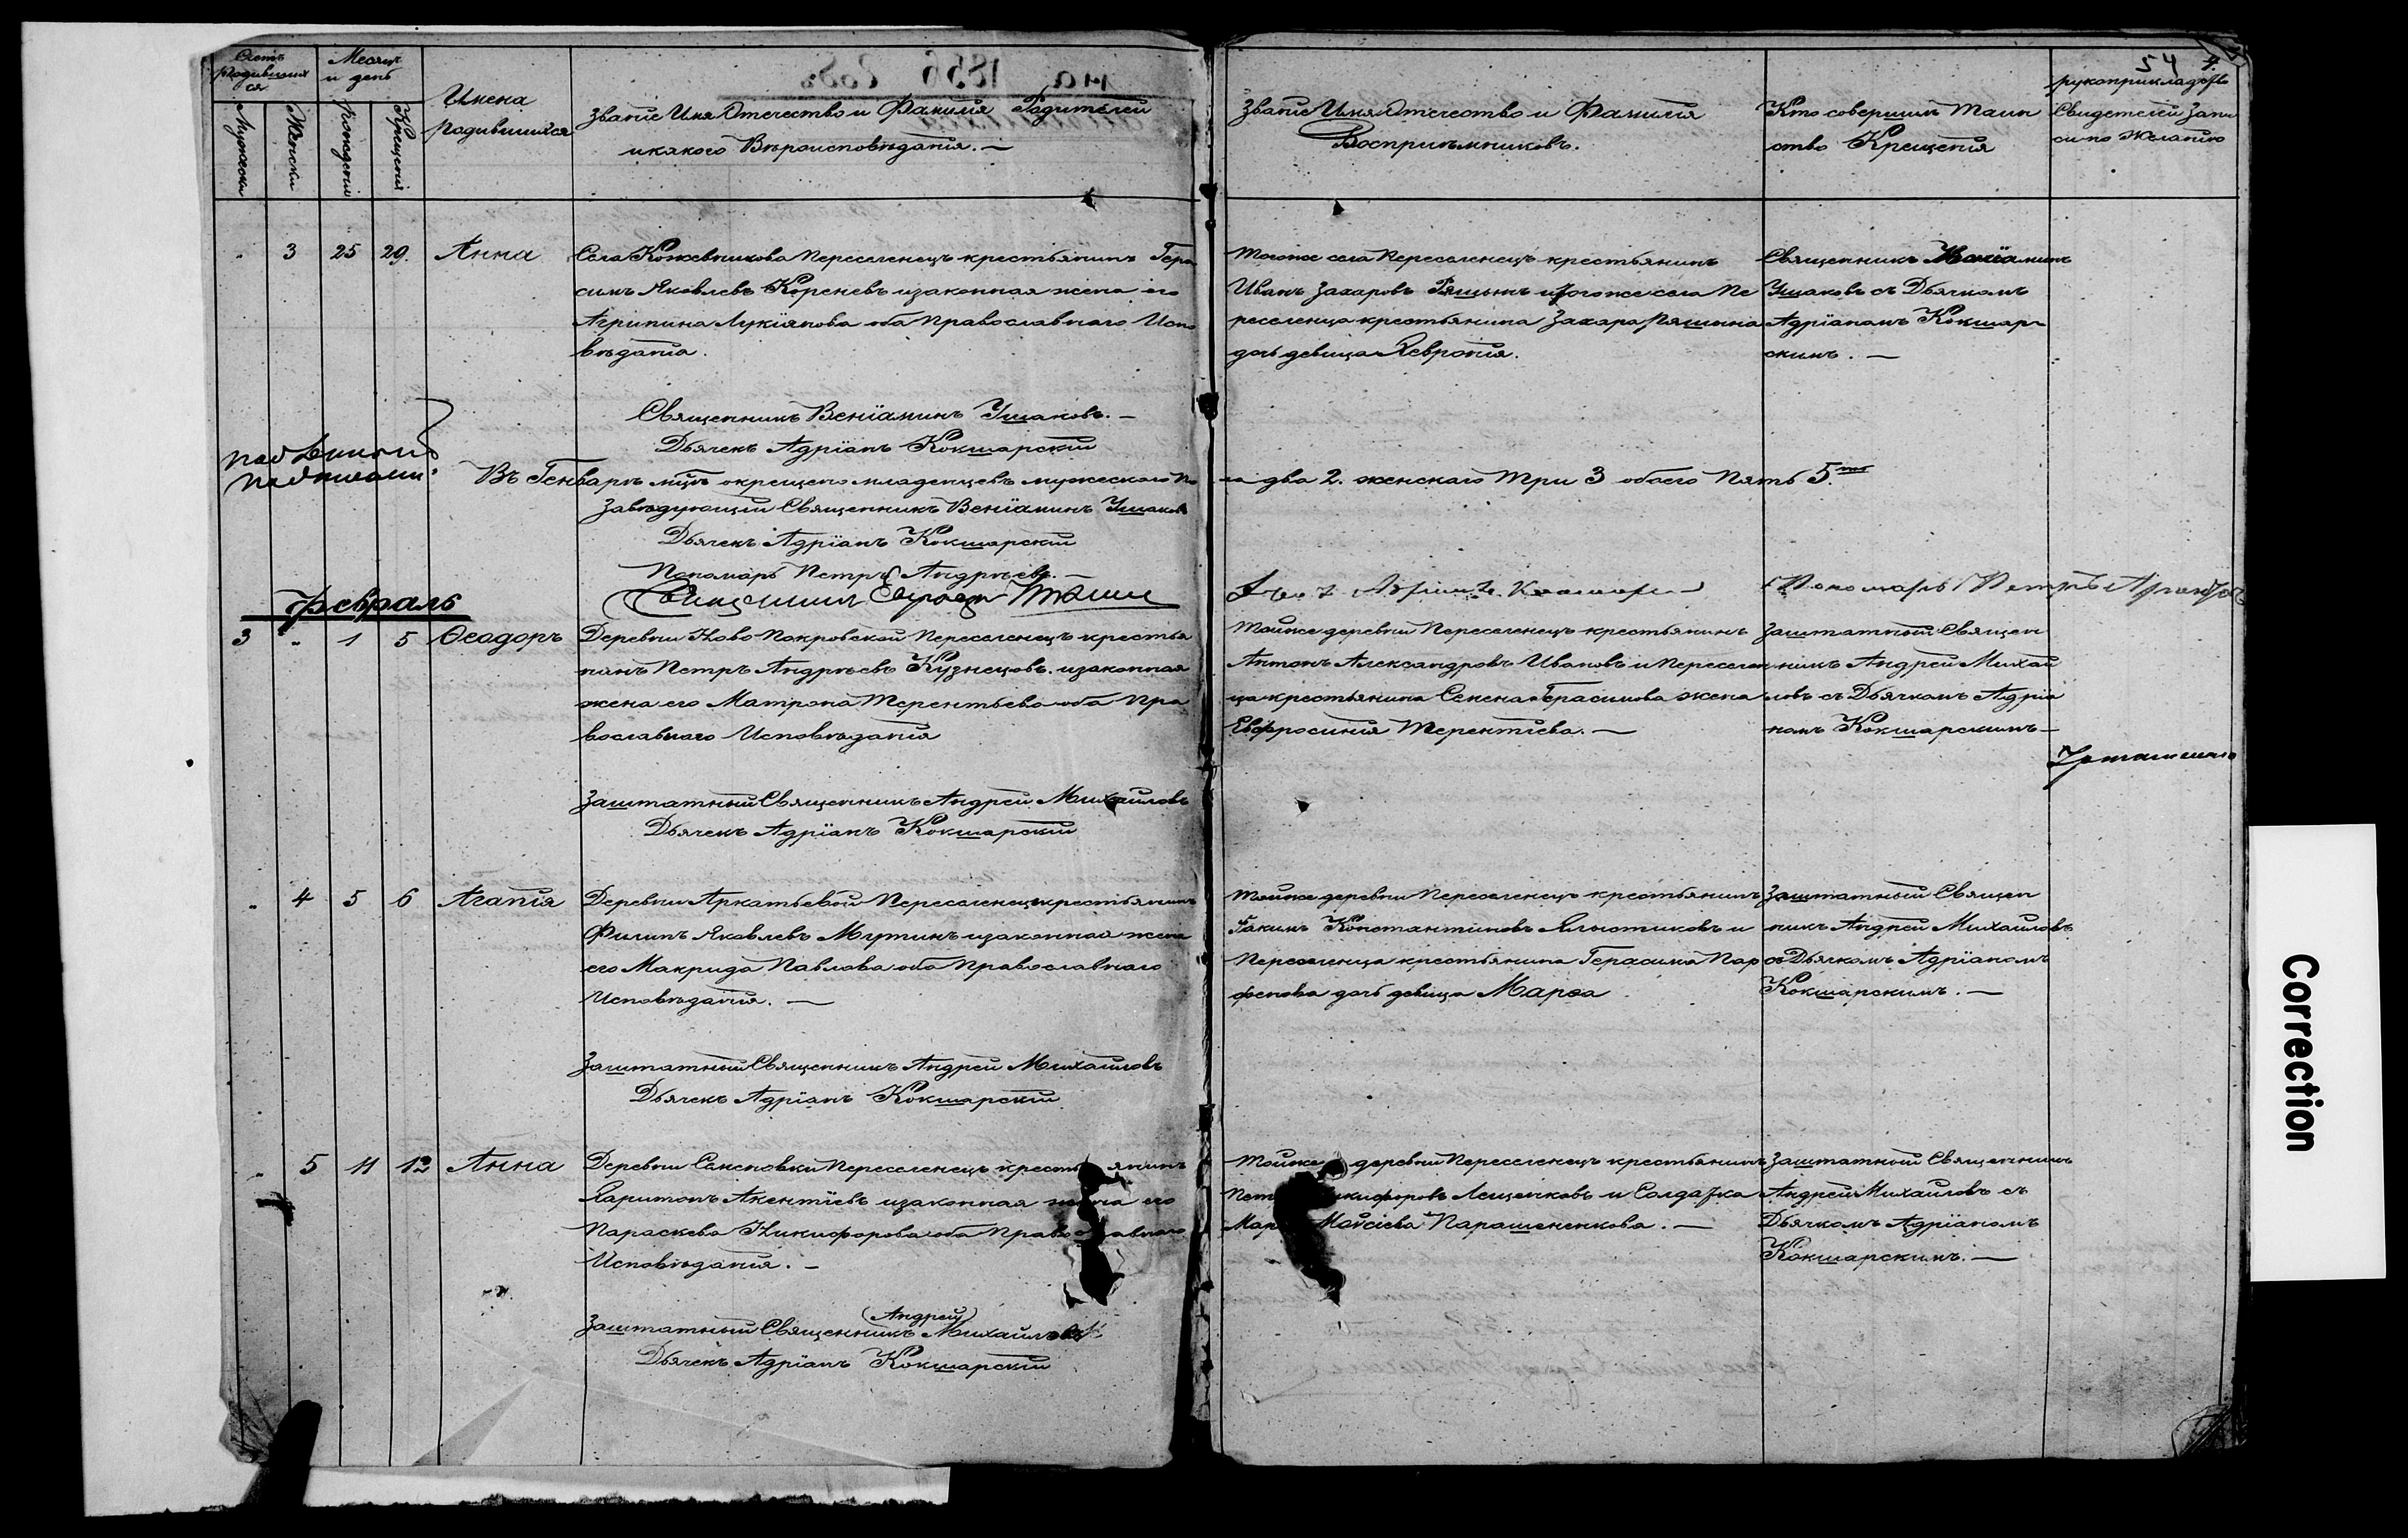 Счетъ родившихся
Месяцъ и день
Имена родившихся
Званіе Имя Отечество и Фамилія Родителей
и какого Вѣроисповѣданія. —
Мужески
Женски
Рожденія
Крещенія
на 1856 Годъ
Званіе Имя Отечество и Фамилія
Воспріемниковъ.
Кто совершилъ Таин
ство Крещенія
54
рукоприкладство
Свидетелей запи
си по Желанію
" 3 25 29. Анна
Села Кожевникова Переселенецъ крестьянинъ Гера
симъ Яковлевъ Кореневъ и законная жена его
Агрипина Лукіянова оба Православнаго Испо
вѣданія.
Тогоже села Переселенецъ крестьянинъ
Иванъ Захаровъ Ряшинъ и тогоже села Пе
реселенца крестьянина Захара Ряшина
дочь девица Хевронія.
Священникъ Веніаминъ
Ушаковъ съ Дьячкомъ
Адріаномъ Кокшар
скимъ. —
Священникъ Веніаминъ Ушаковъ. —
Дьячекъ Адріанъ Кокшарскій
Въ Генварѣ мцѣ окрещено младенцевъ мужескаго по
ла два 2. женскаго Три 3 обоего Пять 5.
Завѣдующій Священникъ Веніаминъ Ушаковъ
Дьячекъ Адріанъ Кокшарскій
Пономарь Петръ Андрѣевъ. —
Пономарь Петръ
Февраль
3 " 1 5 Ѳеодоръ
Деревни Ново-Покровской Переселенецъ крестья
нинъ Петръ Андрѣевъ Кузнецовъ. и законная
жена его Матрона Терентьева оба Пра
вославнаго Исповѣданія
Тойже деревни Переселенецъ крестьянинъ
Антонъ Александровъ Ивановъ и Переселен
ца крестьянина Семена Герасимова жена
Евфросинія Терентіева. —
Заштатный Священ
никъ Андрей Михай
ловъ съ Дьячкомъ Адріа
номъ Кокшарскимъ —
Заштатный Священникъ Андрей Михайловъ
Дьячекъ Адріанъ Кокшарскій
" 4 5 6 Агапія
Деревни Аркатьевой Переселенецъ крестьянинъ
Филипъ Яковлевъ Мутинъ и законная жена
его Макрида Павлова оба Православнаго
Исповѣданія. —
Тойже деревни Переселенецъ крестьянинъ
Іакимъ Константиновъ и
Переселенца крестьянина Герасима Пар
фенова дочь девица Марѳа
Заштатный Священ
никъ Андрей Михайловъ
съ Дьячкомъ Адріаномъ
Кокшарскимъ. —
Заштатный Священникъ Андрей Михайловъ
Дьячекъ Адріанъ Кокшарскій
" 5 11 12 Анна
Деревни Семеновки Переселенецъ крестьянинъ
Харитонъ Акентіевъ и законная жена его
Параскева Никифорова оба Православнаго
Исповѣданія. —
Тойже деревни Переселенецъ крестьянинъ
Никифоровъ Лещенковъ и Солдатка
Моисіева Парашененкова. —
Заштатный Священникъ
Андрей Михайловъ съ
Дьячкомъ Адріаномъ
Кокшарскимъ. —
(Андрей)
Заштатный Священникъ Михайловъ
Дьячекъ Адріанъ Кокшарскій
Correction